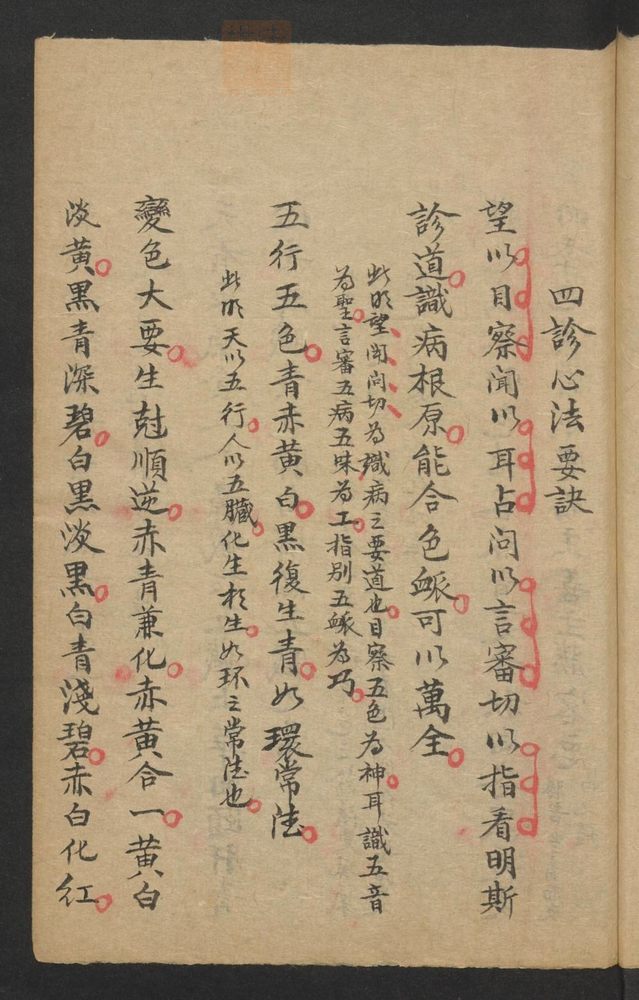 四診心法要訣
望以目察聞以耳占問以言審切以指看明斯
診道識病根原能合色衇可以萬全
此明望聞问切為識病之要道也目察五色為神耳識五音
為聖言審五病五味為工指別五衇為巧
五行五色青赤黃白黑復生青如環常法
此明天以五行人以五臟化生相生如环之常法也
變色大要生尅順逆赤青兼化赤黃合一黃白
淡黃黑青深碧白黑淡黑白青淺碧赤白化紅